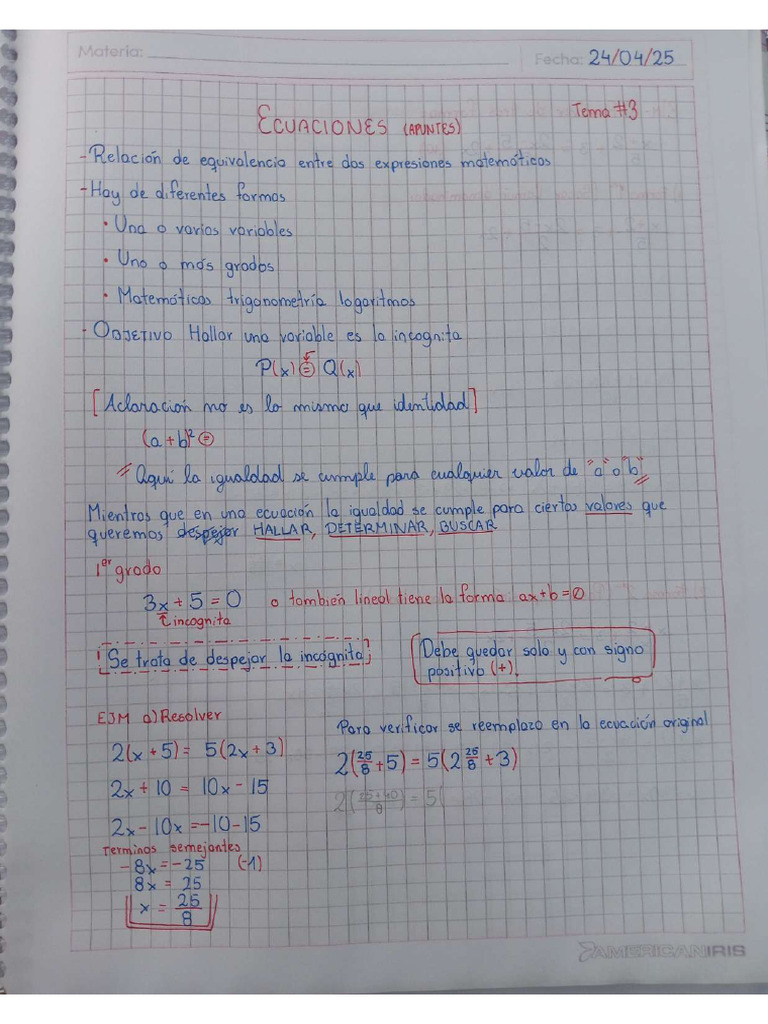 Materia:
Fecha: 24/04/25
Tema #3
ECUACIONES (APUNTES)
- Relación de equivalencia entre dos expresiones matemáticas
- Hay de diferentes formas
• Una o varias variables
• Uno o más grados
• Matemáticas trigonometría logaritmos
- OBJETIVO Hallar una variable es la incognita
P(x) = Q(x)
[Aclaración no es lo mismo que identidad]
(a + b)² =
Aquí la igualdad se cumple para cualquier valor de "a" o "b"
Mientras que en una ecuación la igualdad se cumple para ciertos valores que
queremos despejar HALLAR, DETERMINAR, BUSCAR
1er grado
3x + 5 = 0 o también lineal tiene la forma ax+b=0
incognita
Se trata de despejar la incógnita
Debe quedar solo y con signo
positivo (+).
EJM a) Resolver
2(x + 5) = 5(2x + 3)
2x + 10 = 10x - 15
2x - 10x = -10 - 15
Terminos semejantes
- 8x = - 25 (-1)
8x = 25
x = 25/8
Para verificar se reemplaza en la ecuación original
2(25/8 + 5) = 5(2 25/8 + 3)
2(25+40/8) = 5(
AMERICANIRIS